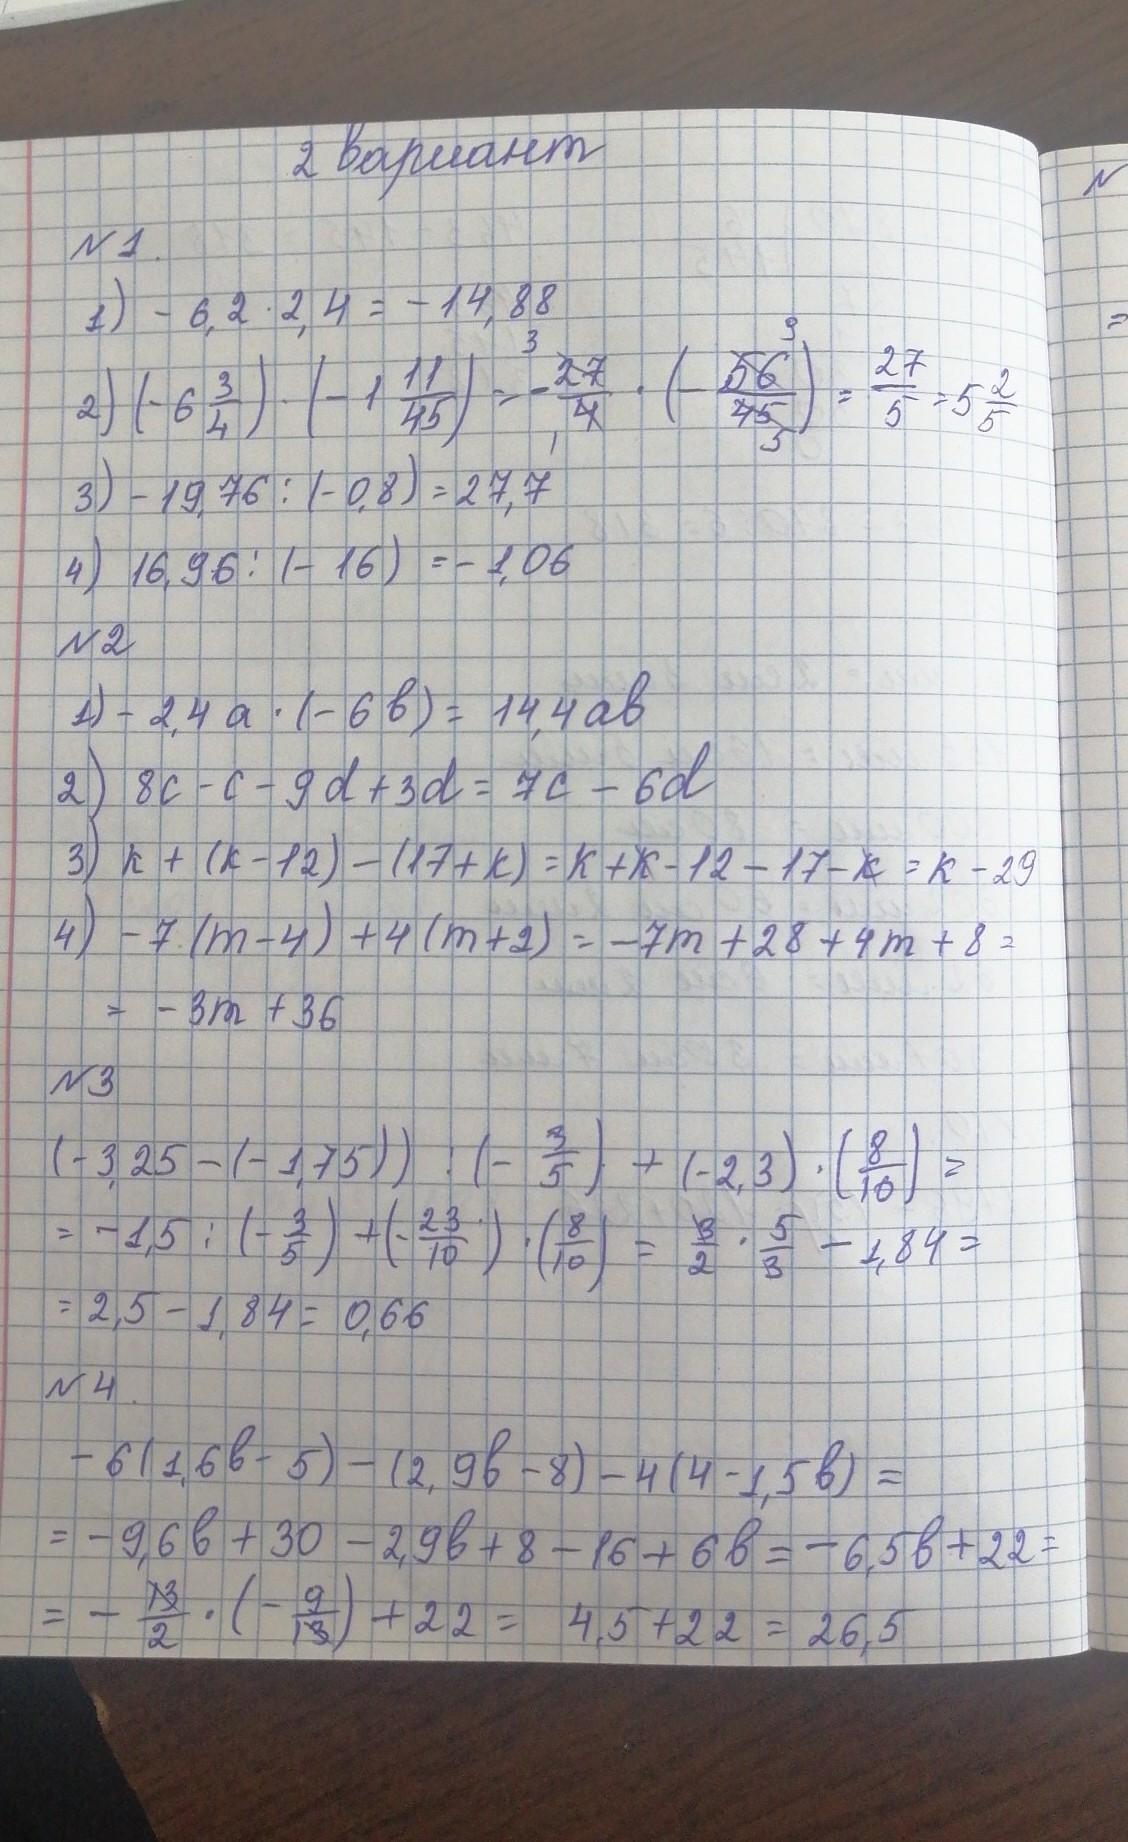 2 вариант
N1.
1) - 6,2 · 2,4 = - 14,88
2) (-6 3/4) · (-1 11/45) = - 27/4 · (- 56/45) = 27/5 = 5 2/5
3) - 19,76 : (-0,8) = 27,7
4) 16,96 : (- 16) = - 1,06
N2
1) - 2,4a · (- 6b) = 14,4ab
2) 8c - c - 9d + 3d = 7c - 6d
3) k + (k - 12) - (17 + k) = k + k - 12 - 17 - k = k - 29
4) - 7 (m - 4) + 4 (m + 2) = - 7m + 28 + 4m + 8 =
= - 3m + 36
N3
(-3,25 - (-1,75)) : (- 3/5) + (-2,3) · (8/10) =
= - 1,5 : (- 3/5) + (- 23/10) · (8/10) = 3/2 · 5/3 - 1,84 =
= 2,5 - 1,84 = 0,66
N4.
- 6 (1,6b - 5) - (2,9b - 8) - 4 (4 - 1,5b) =
= - 9,6b + 30 - 2,9b + 8 - 16 + 6b = - 6,5b + 22 =
= - 13/2 · (- 9/13) + 22 = 4,5 + 22 = 26,5
N
=